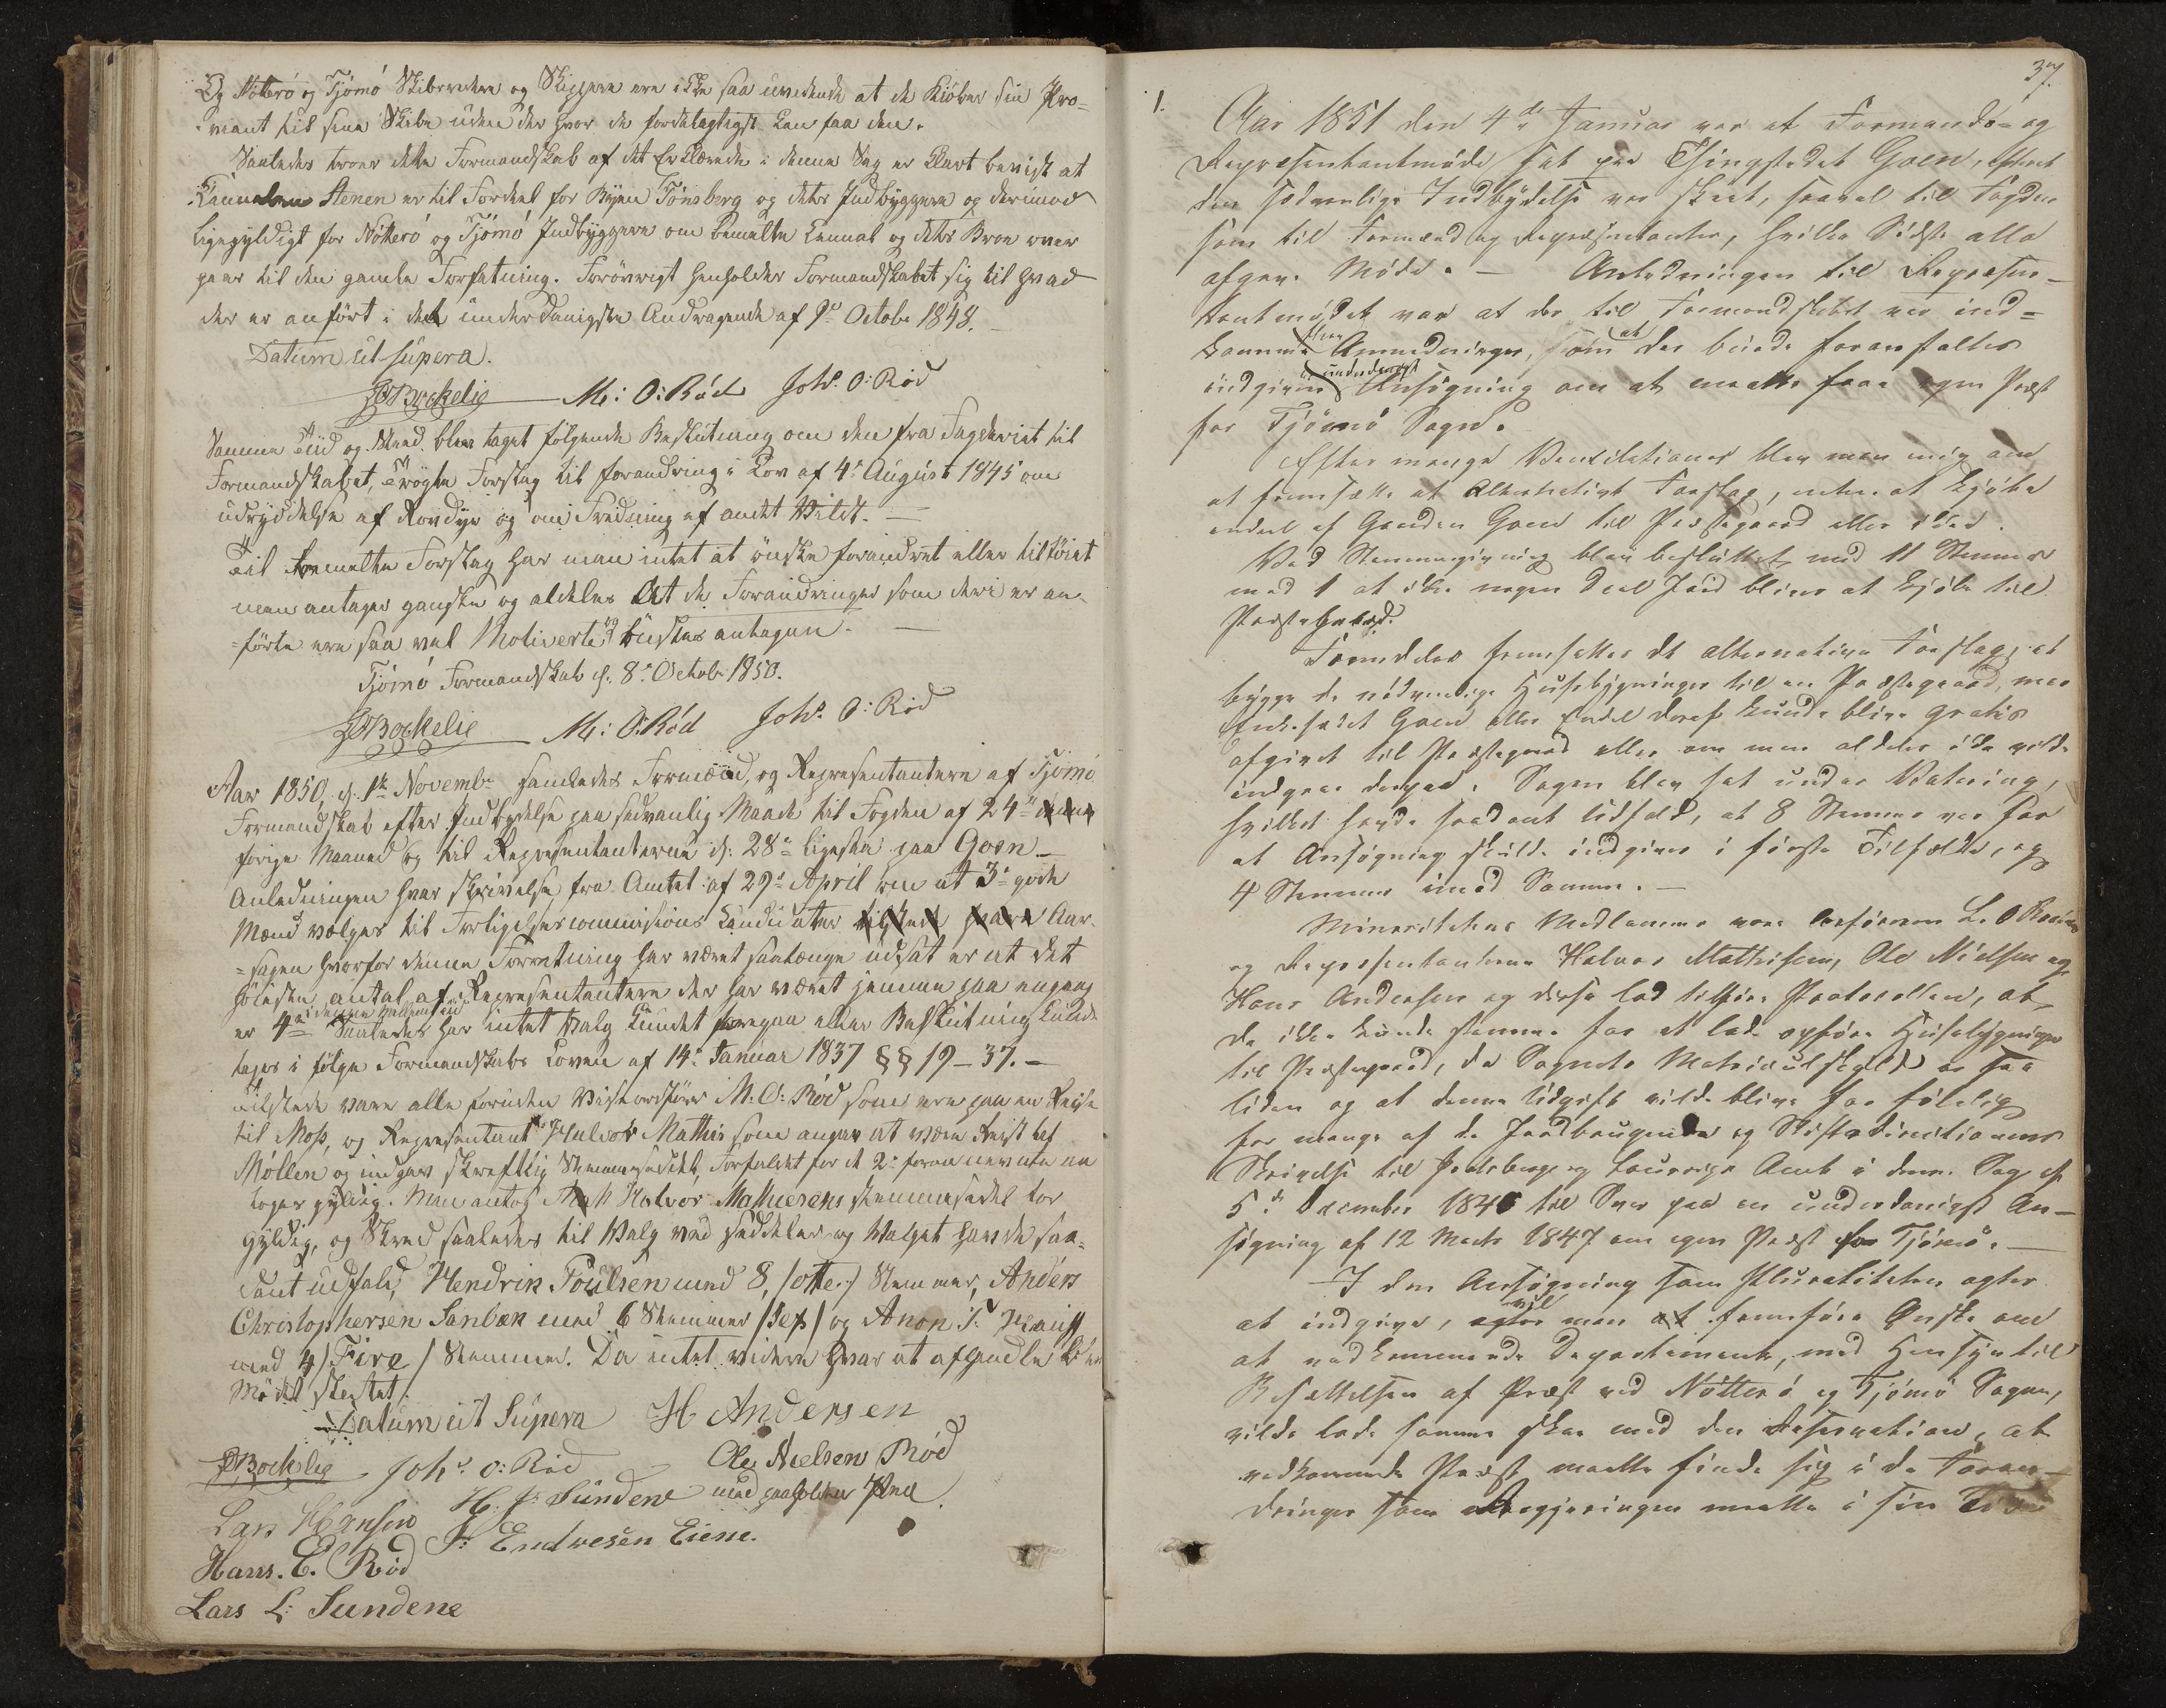 Og Nøterö og Tjömö Skibsredere og Skippere ere ikke saa uvidende at de Kiöber sin Pro-
-viant til sine Skibe uden der hvor de fordelagtigst kan faa den.
Saaledes troer dette Formandskab af det Erklærede i denne Sag er klart bevist at
Kannalen Stenen er til Fordeel for Byen Tönsberg og dets Indbyggere og derimod
ligegyldigt for Nötterö og Tjömö Indbyggere om bemelte Kannal og dets Broe over
gaar til den gamle Forfatning. Forövrigt henholder Formandskabet sig til hvad
der er anfört i dets underdanigste Andragende af 9d Octobr 1848.
Datum ut supera.
Bockelie M: O: Röd Johs. O: Röd
Samme Tiid og Sted blev taget fölgende Beslutning om den fra Fogderiet til
Formandskabet, Forslag til forandring i Lov af 4de August 1845 om
udryddelse af Rovdyr og om Fredning af andet Vildt.
Til bemelte Forslag har man intet at önske forandret eller tilföiet
men antager ganske og aldeles At de Forandringer som deri er an-
-förte ere saa vel Motiverte og önskes antagen.
Tjömö Formandskab d. 8de Octobr 1850.
Bockelie M: O: Röd Johs. O: Röd
Aar 1850, d. 1ste Novembr samledes Formænd, og Representantere af Tjömö
Formandskab efter Indbydelse paa sædvanlig Maade til Fogden af 24de
forige Maaned og til Representanterne d. 28de ligesaa paa Goen
Anledningen hvar skrivelse fra Amtet af 29de April om at 3de gode
Mænd vælges til Forligelsescommissions Kandidater Aar-
-sagen hvorfor denne Forretning har været saalænge udsat er at det
höieste antal af Representantere der har været jemme paa engang
er 4de i denne mellemtiid Saaledes har intet Valg kundet foregaa eller Beslutning kunde
tages i fölge Formandskabs Loven af 14de Januar 1837 §§ 19-37.
tilstede vare alle foruden Viseordförer M. O: Röd som ere paa en Reise
til Moss, og Representant Halvor Mathis som angav at være Reist til
Möllen og indgav skreftlig Stemmeseddel, Forfaldet for de 2de foran nevnte an
toges gyldig. Man antog Halvor Mathiesens stemmesedel for
gyldig, og Skred saaledes til Valg ved Seddeler og Valget havde saa-
dant udfald, Hendrik Poulsen med 8, /otte/ Stemmer, Anders
Christophersen Sanbæk med 6 Stemmer /Sex/ og Anon
med 4 /Fire/ Stemmer. Da intet videre hvar at afhandle blev
Mödet sluttet.
Datum ut Supera H Andersen
Bockelie Johs. O: Röd Ole Nielsen Röd
Lars Hansen H. J. Sundene med paaholden Pen.
Hans. C. Röd Endresen Eiene.
Lars L: Sundene
37.
1. Aar 1851 den 4de Januar var et Formands- og
Repræsentantmöde sat paa Thingstedet Goen, efterat
den sedvanlige Indbydelse var skeet, saavel til Fogden
som til Formænd og Repræsentanter, hvilke Sidste alle
afgav Möde. - Anledningen til Repræsen-
tantmödet var at der til Formandskabet var ind-
kommen flere Anmodninger, som at der burde foranstaltes
indgiven underdanigst Ansögning om at maatte faae egen Præst
for Tjömö Sogn.
Efter mange Ventilationer blev man enig om
at fremsætte et Alternativt Forslag, enten at kjöbe
endeel af Gaarden Goen til Præstegaard eller ikke.
Ved Stemmegivning blev besluttet med 11 Stemmer
mod 1 at ikke nogen Deel Jord bliver at kjöbe til
Præstegaard.
Fremdeles fremsattes det alternative Forslag, at
bygge de nödvendige Huusbygninger til en Præstegaard, naar
Enkesædet Goen eller Endel deraf kunde blive gratis
afgivet til Præstegaard eller om man aldeles ikke vilde
indgaae derpaa. Sagen blev sat under Votering,
hvilket havde saadant Udfald, at 8 Stemmer var for
at Ansögning skulde indgives i förste Tilfælde, og
4 Stemmer imod Samme.
Minoritetens Medlemmer vare Ordföreren L. O
og Repræsentanterne Halvor Mathisen, Ole Nielsen og
Hans Andersen og disse lod tilföre Protocollen, at
de ikke kunde stemme for at lade opföre Huusbygninger
til Præstegaard, da Sognets Matriculskyld er saa
liden og at denne Udgift vilde blive for fölelig
for mange af de Jordbrugende og Stiftsdirectionens
Skrivelse til Jarlsberg og Laurvigs Amt i denne Sag af
5te December 1846 til Svar paa en underdanigst An-
sögning af 12 Marts 1847 om egen Præst for Tjömö.
I den Ansögning som Pluraliteten agter
at indgive, agter vil man at fremföre Önske om
at vedkommende Departement, med Hensyn til
Besættelsen af Præst ved Nötterö og Tjömö Sogne,
vilde lade samme skee med den Reservation, at
vedkommende Præst maatte finde sig i de Foran-
dringer som Regjeringen maatte i sin Tid